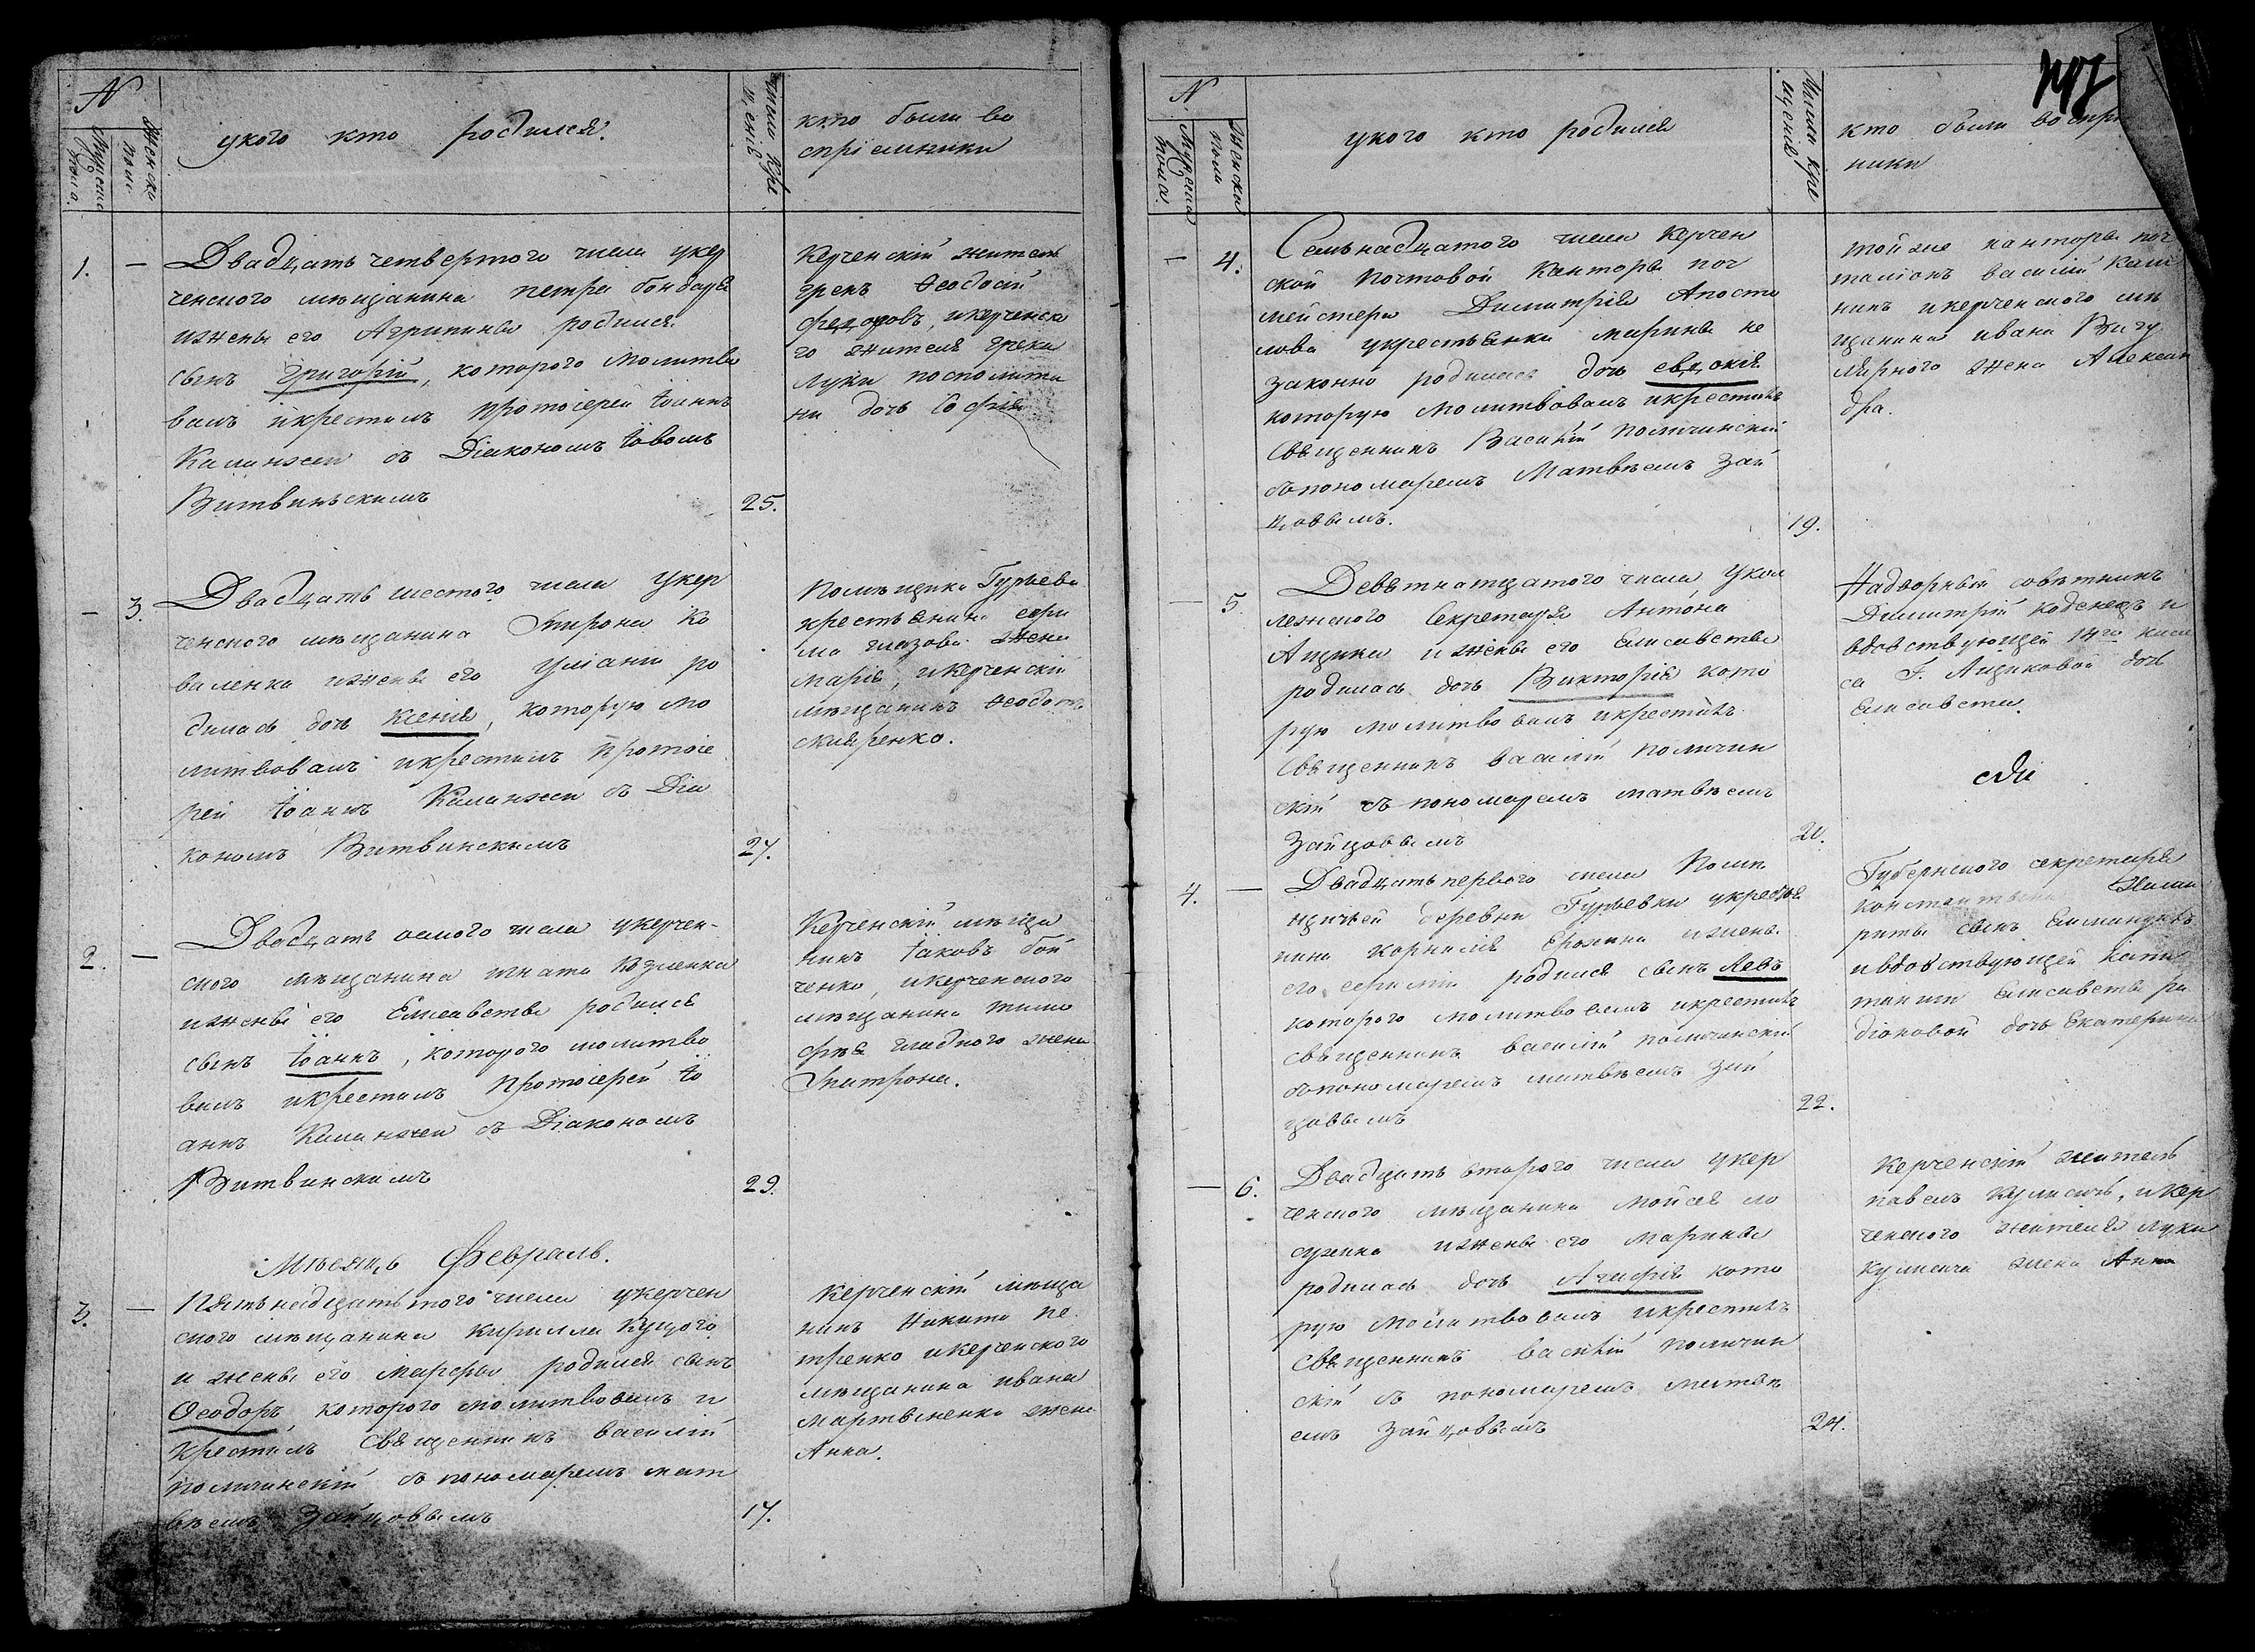 N
Мужеска пола.
Женска пола
укого кто родился.
Числа кре
щенія
кто были во
спріемники
1. —
Двадцать четвертого числа укер
ченского мещанина петра бондаря
ижены его Агрипины родился
сынъ Григорій, которого молитво
валъ икрестилъ протоіерей Іоаннъ
съ Діакономъ Іовомъ
Витвинъскимъ
25.
Керченскій житель
грекъ Ѳеодосій
Федоровъ, икерченска
го жителя грека
луки посполити
ни дочь Софія
— 3.
Двадцать шестого числа укер
ченского мещанина Спирона Ко
валенка ижены его Уліаніи ро
дилась дочь Ксенія, которую мо
литвовалъ икрестилъ протоіе
рей Іоаннъ съ Діа
кономъ Витвинскимъ
27.
Помещика Гурьева
крестьянина
ма глазова жена
марія, икерченскій
мещанинъ Ѳеодотъ
скляренко.
2. —
Двадцать осмого числа укерчен-
ского мещанина игната Козленка
ижены его Елисаветы родился
сынъ Іоаннъ, которого молитво
валъ икрестилъ протоіерей Іо
аннъ съ Діакономъ
Витвинскимъ
29.
Керченскій меща
нинъ Іаковъ бой
ченко, икерченского
мещанина тимо
фея гладкого жена
3. —
Месяцъ Февраль.
Пятьнадцатьтого числа укерчен
ского мещанина кирилла Куцого
и жены его Марфы родился сынъ
Ѳеодоръ которого молитвовалъ и
крестилъ Священникъ василій
поличинскій съ пономаремъ мат
веемъ Зайцовымъ
17.
Керченскій меща
нинъ Никита пе
тренко икерченского
мещанина ивана
мартыненка жена
Анна.
N
Мужеска пола.
Женска пола
укого кто родился
Числа кре
щенія
кто были воспри
ники
— 4.
Семьнадцатого числа Керчен
ской Почтовой Канторы поч
мейстера Димитрія Апосто
лова укрестьянки марины не
законно родилась дочь евдокія
которую молитвовалъ икрестилъ
Священникъ Василій поличинскій
съпономаремъ Матвеемъ Зай
цовымъ.
19.
той же канторы поч
таліонъ василій Каш
нинъ икерченского ме
щанина ивана
жена Алексан
дра.
— 5.
Девятнатцатого числа укол
лежского Секретаря Антона
Ащика ижены его Елисаветы
родилась дочь Викторія кото
рую молитвовалъ икрестилъ
Священникъ василій поличин
скій съ пономаремъ матвеемъ
Зайцовымъ
20.
Надворный советникъ
Димитрій и
вдовствующей 14го клас
са Г. Ащиковой дочь
Елисавета.
4. —
Двадцать первого числа Поме
щичьей деревни Гурьевки укрестья
нина Корнилія Ерохина ижены
его родился сынъ Левъ
которого молитвовалъ икрестилъ
священникъ василій поличинскій
съпономаремъ матвеемъ Зай
цовымъ
22.
Губернского секретаря
константина
сынъ
ивдовствующей капи
танши Елисаветы ра
діоновой дочь Екатерина
— 6.
Двадцать второго числа укер
ченского мещанина Мойсея ло
ижены его Марины
родилась дочь Агафія кото
рую молитвовалъ икрестилъ
священникъ василій поличин
скій съ пономаремъ матве
емъ Зайцовымъ
24.
Керченскій житель
павелъ икер
ченского жителя луки
жена Анна